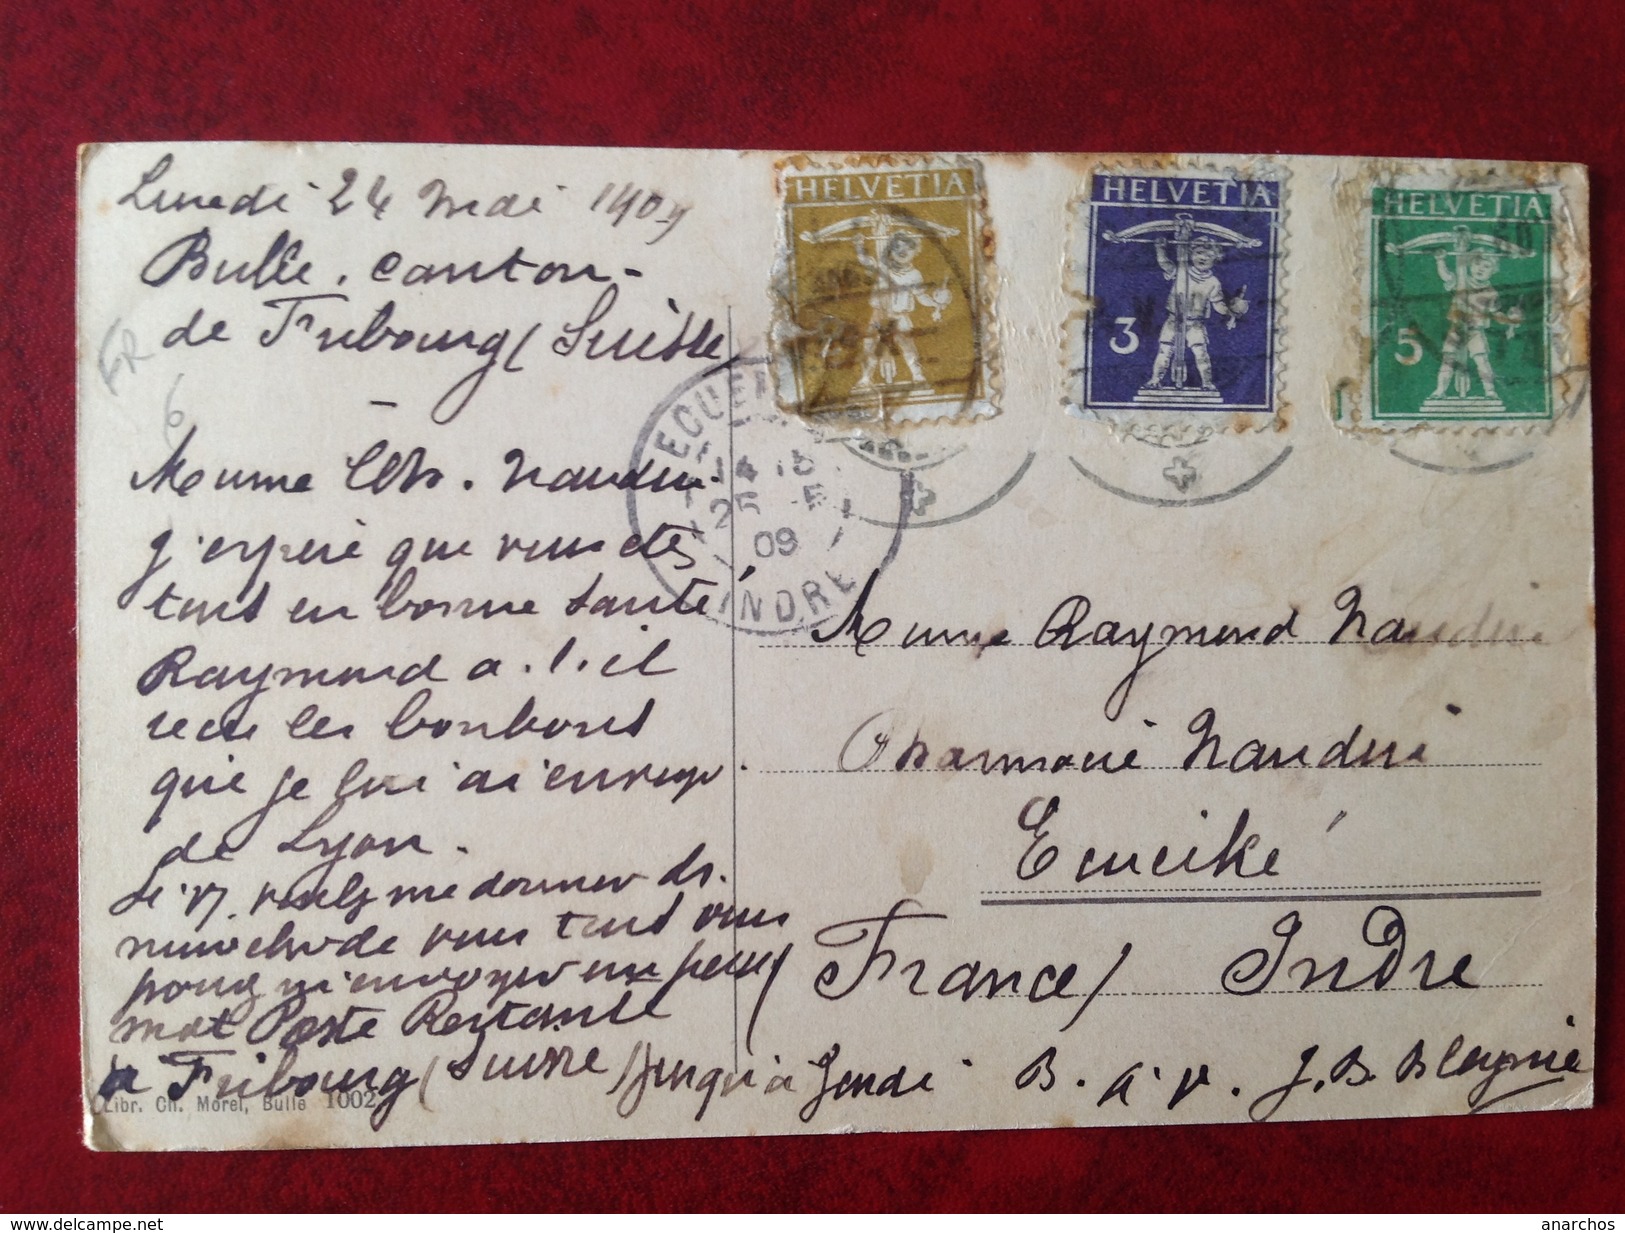 Lundi 24 Mai 1909
Bulle. Canton-
de Fribourg (Suisse
FR
6
HELVETIA
2
HELVETIA
3
HELVETIA
5
ECUE
14 15
25 - 5
09
INDRE
Mme Ch. Naudin
j'espère que vous êtes
tous en bonne santé
Raymond a.t.il
recu les bonbons
que je lui ai envoyé
de Lyon.
Si v. voulez me donner ds.
nouvelles de vous tous vous
pouvez m'envoyer un petit
mot Poste Restante
à Fribourg (Suisse) jusqu'à Jeudi B. à v. J. B. Blagnie
Raymond Naudin
Pharmacie Naudin
Ecueillé
(France) Indre
Libr. Ch. Morel, Bulle 1002
delcampe.net
anarchos